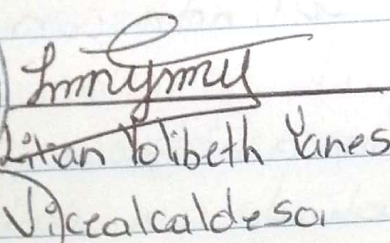 Lilian Yolibeth Yanes
Vicealcaldesa